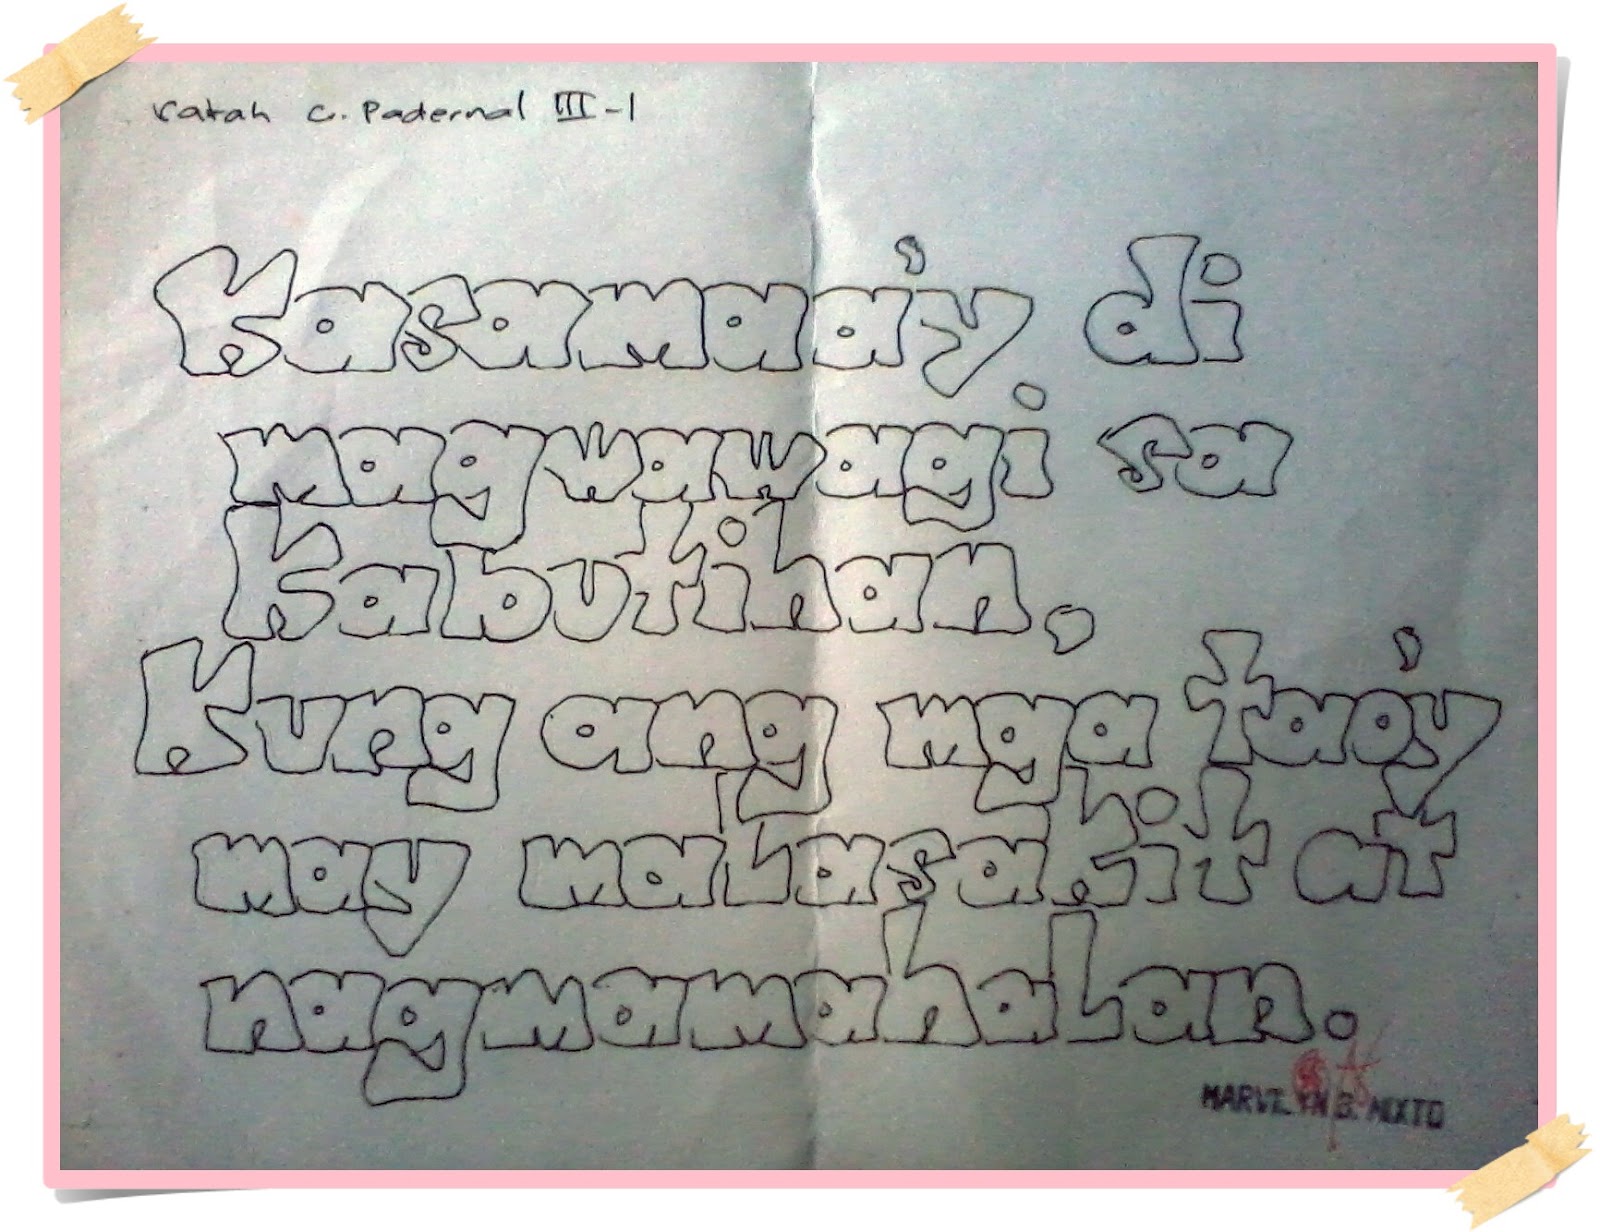 Katah C. Padernal III-1
Kasamaa'y di
magwawagi sa
Kabutihan,
Kung ang mga tao'y
may malasakit at
nagmamahalan.
MARVELYN B. MIXTO